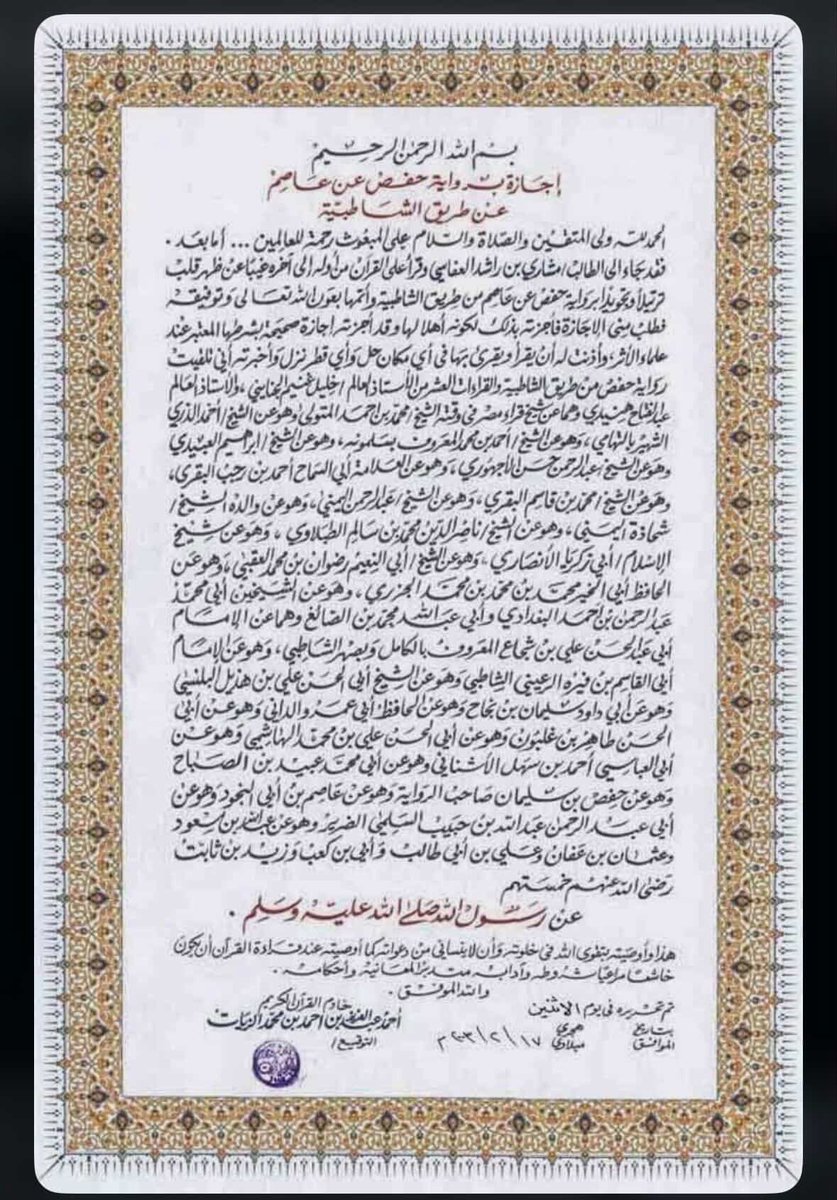 بسم الله الرحمن الرحيم
إجازة برواية حفص عن عاصم
عن طريق الشاطبية
الحمد لله ولي المتقين والصلاة والسلام على المبعوث رحمة للعالمين ... أما بعد .
فقد جاء الى الطالب / مشاري بن راشد العفاسي وقرأ على القرآن من أوله إلى آخره غيبا عن ظهر قلب
ترتيلا وتجويدا برواية حفص عن عاصم من طريق الشاطبية وأتمها بعون الله تعالى وتوفيقه
فطلب منى الاجازة فأجزته بذلك لكونه أهلا لها وقد أجزته اجازة صحيحة بشرطها المعتبر عند
علماء الأثر، وأذنت له أن يقرأ ويقرئ بها في أي مكان حل وأي قطر نزل وأخبرته أني تلقيت
رواية حفص من طريق الشاطبية والقراءات العشر من الأستاذ العالم / خليل غنيم الجنايني ، والأستاذ العالم
عبد الفتاح هنيدي وهما عن شيخ قراء مصر في وقته الشيخ / محمد بن احمد المتولي وهو عن الشيخ / أحمد الدري
الشهير بالتهامي ، وهو عن الشيخ / أحمد بن محمد المعروف بسلمونه، وهو عن الشيخ / ابراهيم العبيدي
وهو عن الشيخ / عبد الرحمن حسن الأجهوري ، وهو عن العلامة أبي السماح أحمد بن رجب البقري،
وهو عن الشيخ / محمد بن قاسم البقري ، وهو عن الشيخ / عبد الرحمن اليمني ، وهو عن والده الشيخ /
شحاذة اليمنى ، وهو عن الشيخ / ناصر الدين محمد بن سالم الطبلاوي ، وهو عن شيخ
الاسلام / أبي زكريا الأنصاري ، وهو عن الشيخ / أبي النعيم رضوان بن محمد العقبي ، وهو عن
الحافظ أبي الخير محمد بن محمد بن محمد الجزري ، وهو عن الشيخين أبي محمد
عبد الرحمن بن احمد البغدادي وأبي عبد الله محمد بن الصائغ وهما عن الإمام
أبي عبد الحسن علي بن شجاع المعروف بالكامل وبصهر الشاطبي ، وهو عن الإمام
أبي القاسم بن فيره الرعيني الشاطبي وهو عن الشيخ أبي الحسن علي بن هذيل البلنسي
وهو عن أبي داود سليمان بن نجاح وهو عن الحافظ أبي عمرو الداني وهو عن أبي
الحسن طاهر بن غلبون وهو عن أبي الحسن علي بن محمد الهاشمي وهو عن
أبي العباسي أحمد بن سهل الأشناني وهو عن أبي محمد عبيد بن الصباح
وهو عن حفص بن سليمان صاحب الرواية وهو عن عاصم بن أبي النجود وهو عن
أبي عبد الرحمن عبد الله بن حبيب السلمي الضرير وهو عن عبد الله بن مسعود
وعثمان بن عفان وعلي بن أبي طالب وأبي بن كعب وزيد بن ثابت
رضى الله عنهم خمستهم
عن رسول الله صلى الله عليه وسلم .
هذا وأوصيته بتقوى الله في خلوته وأن لا ينساني من دعواته كما أوصيته عند قراءة القرآن أن يكون
خاشعا مراعيا شروطه وآدابه متدبرا لمعانيه وأحكامه .
والله الموفق .
تم تحريره في يوم الاثنين
خادم القرآن الكريم
بتاريخ هجري
أحمد عبد العزيز بن احمد بن محمد الزيات
الموافق ١٧/٢/٢٠٠٣م ميلادي
التوقيع /